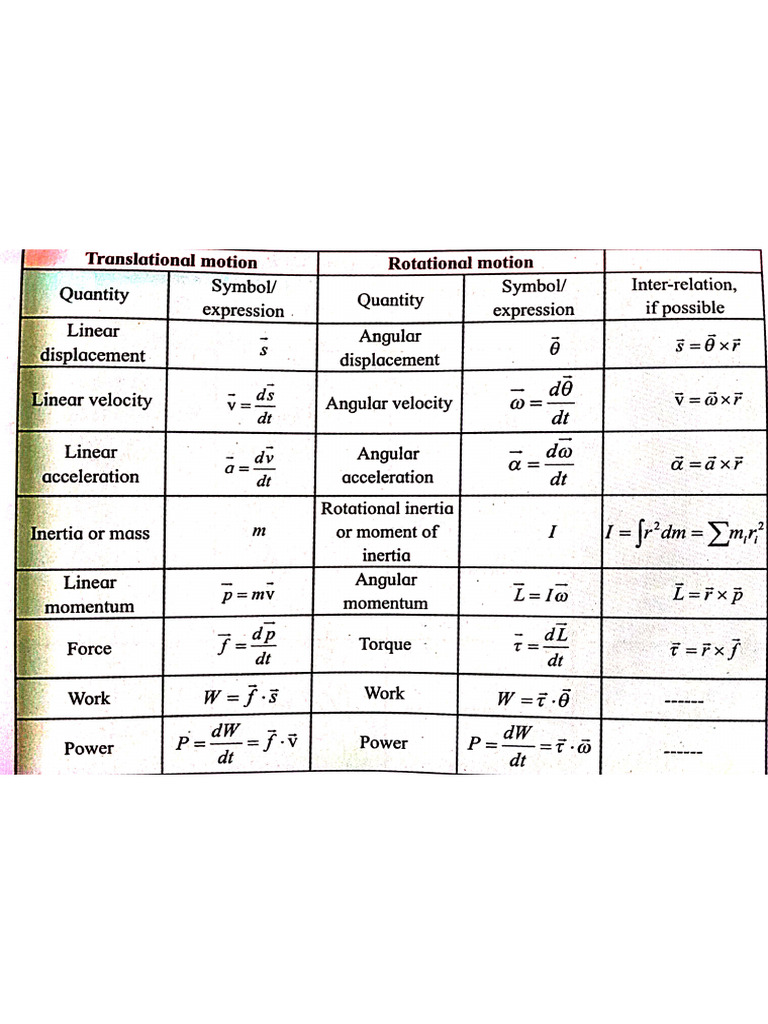 Translational motion Rotational motion
Quantity Symbol/ expression Quantity Symbol/ expression Inter-relation, if possible
Linear displacement s⃗ Angular displacement θ⃗ s⃗ = θ⃗ × r⃗
Linear velocity v⃗ = ds⃗/dt Angular velocity ω⃗ = dθ⃗/dt v⃗ = ω⃗ × r⃗
Linear acceleration a⃗ = dv⃗/dt Angular acceleration α⃗ = dω⃗/dt α⃗ = a⃗ × r⃗
Inertia or mass m Rotational inertia or moment of inertia I I = ∫r²dm = ∑mᵢrᵢ²
Linear momentum p⃗ = mv⃗ Angular momentum L⃗ = Iω⃗ L⃗ = r⃗ × p⃗
Force f⃗ = dp⃗/dt Torque τ⃗ = dL⃗/dt τ⃗ = r⃗ × f⃗
Work W = f⃗ · s⃗ Work W = τ⃗ · θ⃗ ------
Power P = dW/dt = f⃗ · v⃗ Power P = dW/dt = τ⃗ · ω⃗ ------